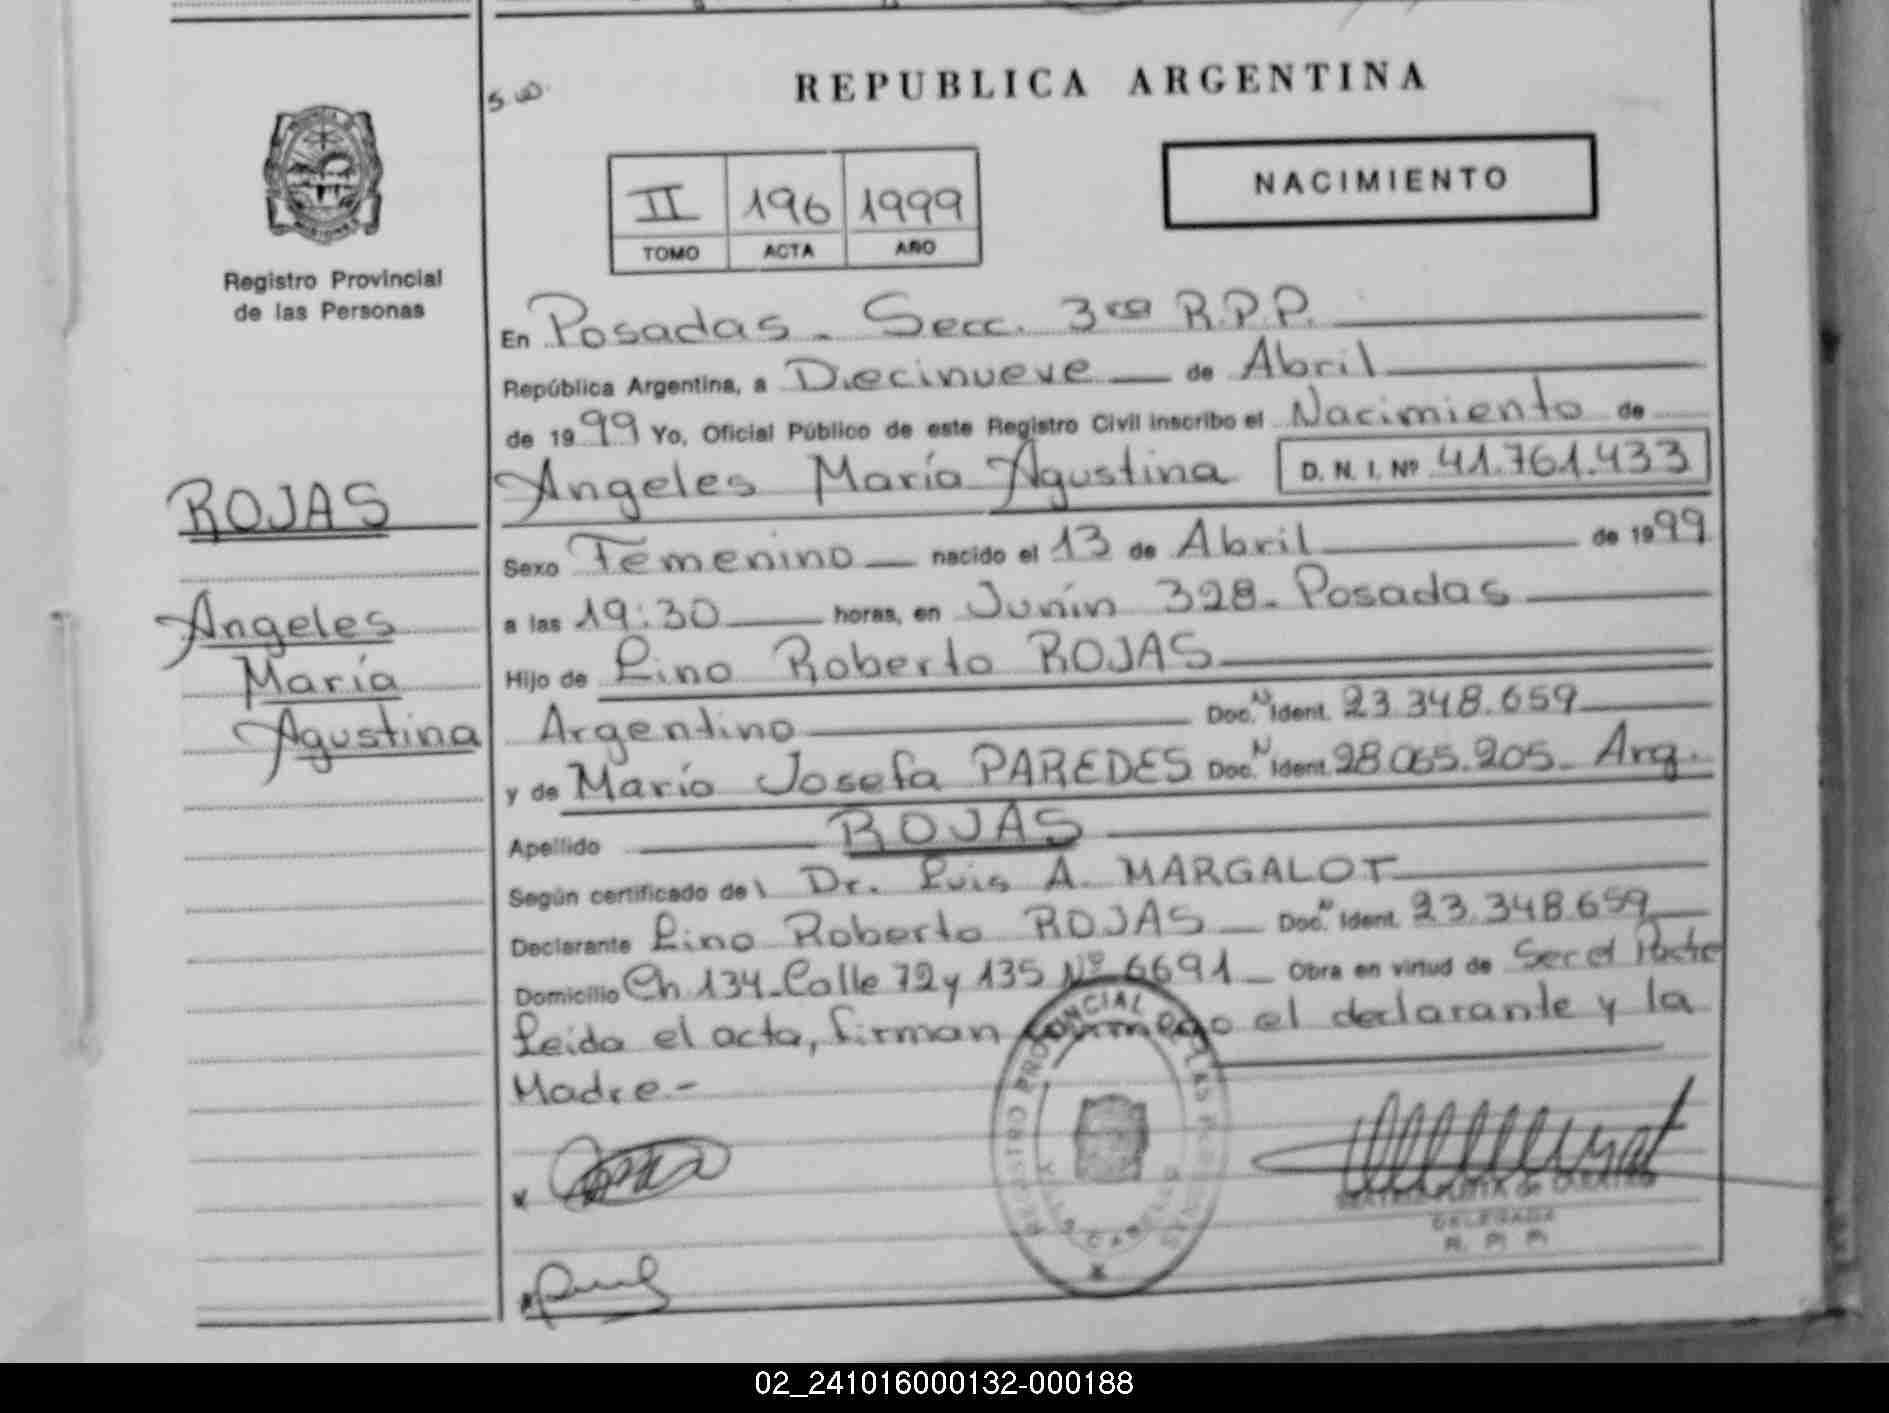 REPUBLICA ARGENTINA
NACIMIENTO
II 196 1999
TOMO ACTA AÑO
Registro Provincial
de las Personas
En Posadas - Secc. 3ra R.P.P.
República Argentina, a Diecinueve de Abril
de 1999 Yo, Oficial Público de este Registro Civil inscribo el Nacimiento de
Angeles María Agustina D. N. I. Nº 41.761.433
ROJAS
Angeles
María
Agustina
Sexo Femenino nacido el 13 de Abril de 1999
a las 19:30 horas, en Junín 328 - Posadas
Hijo de Lino Roberto ROJAS
Argentino Doc. N Ident. 23.348.659
y de María Josefa PAREDES Doc. N Ident. 28.065.205 - Arg.
Apellido ROJAS
Según certificado del Dr. Luis A. MARGALOT
Declarante Lino Roberto ROJAS - Doc. N Ident. 23.348.659
Domicilio Ch 134 - Calle 72 y 135 Nº 6691 - Obra en virtud de Ser el Padre
Leida el acta, firman conmigo el declarante y la
Madre -
REGISTRO PROVINCIAL DE LAS PERSONAS
DELEGADA
R. P. P.
02_241016000132-000188